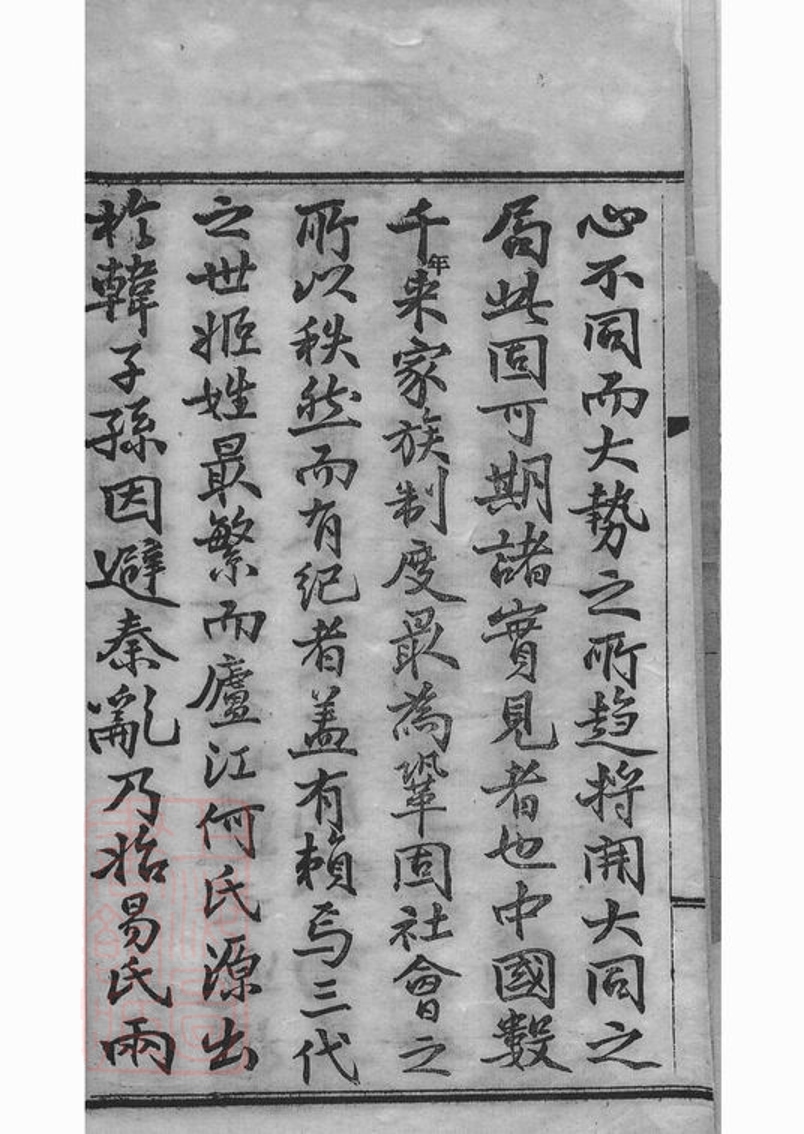 心不同而大勢之所趋将開大同之
局此固可期諸實見者也中國數
千年来家族制度最為鞏固社會之
所以秩然而有紀者盖有賴焉三代
之世姬姓最繁而廬江何氏源出
於韓子孫因避秦亂乃始易氏兩